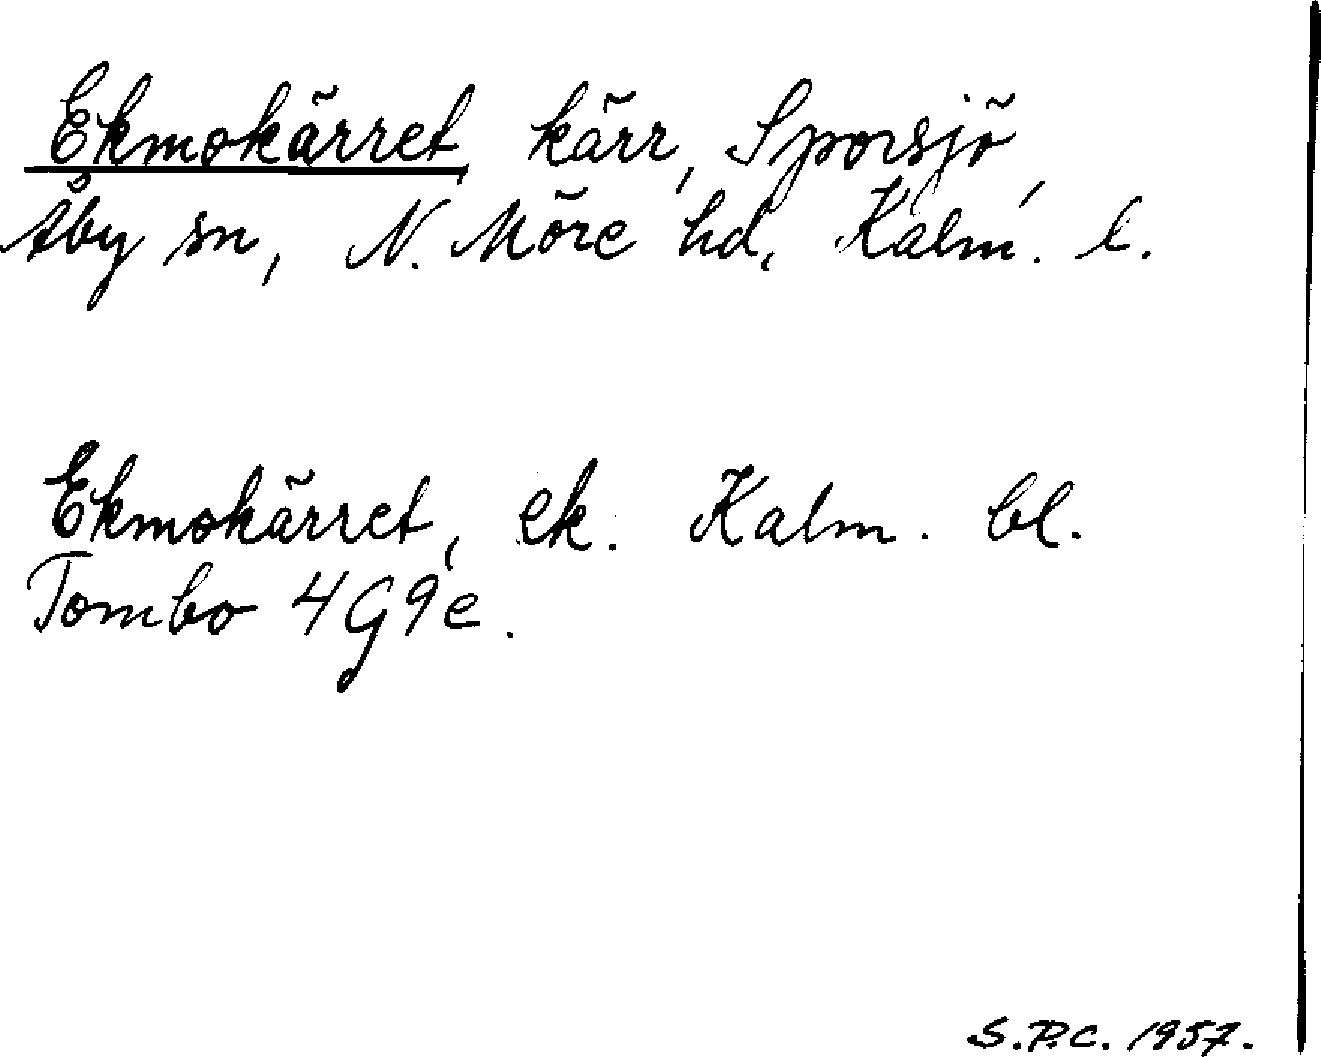 Ekmokärret, kärr, Sporsjö,
Åby sn, N. Möre hd, Kalm. l.
Ekmokärret, ek. Kalm. bl.
Tombo 4G9e.
S.P.C. 1957.